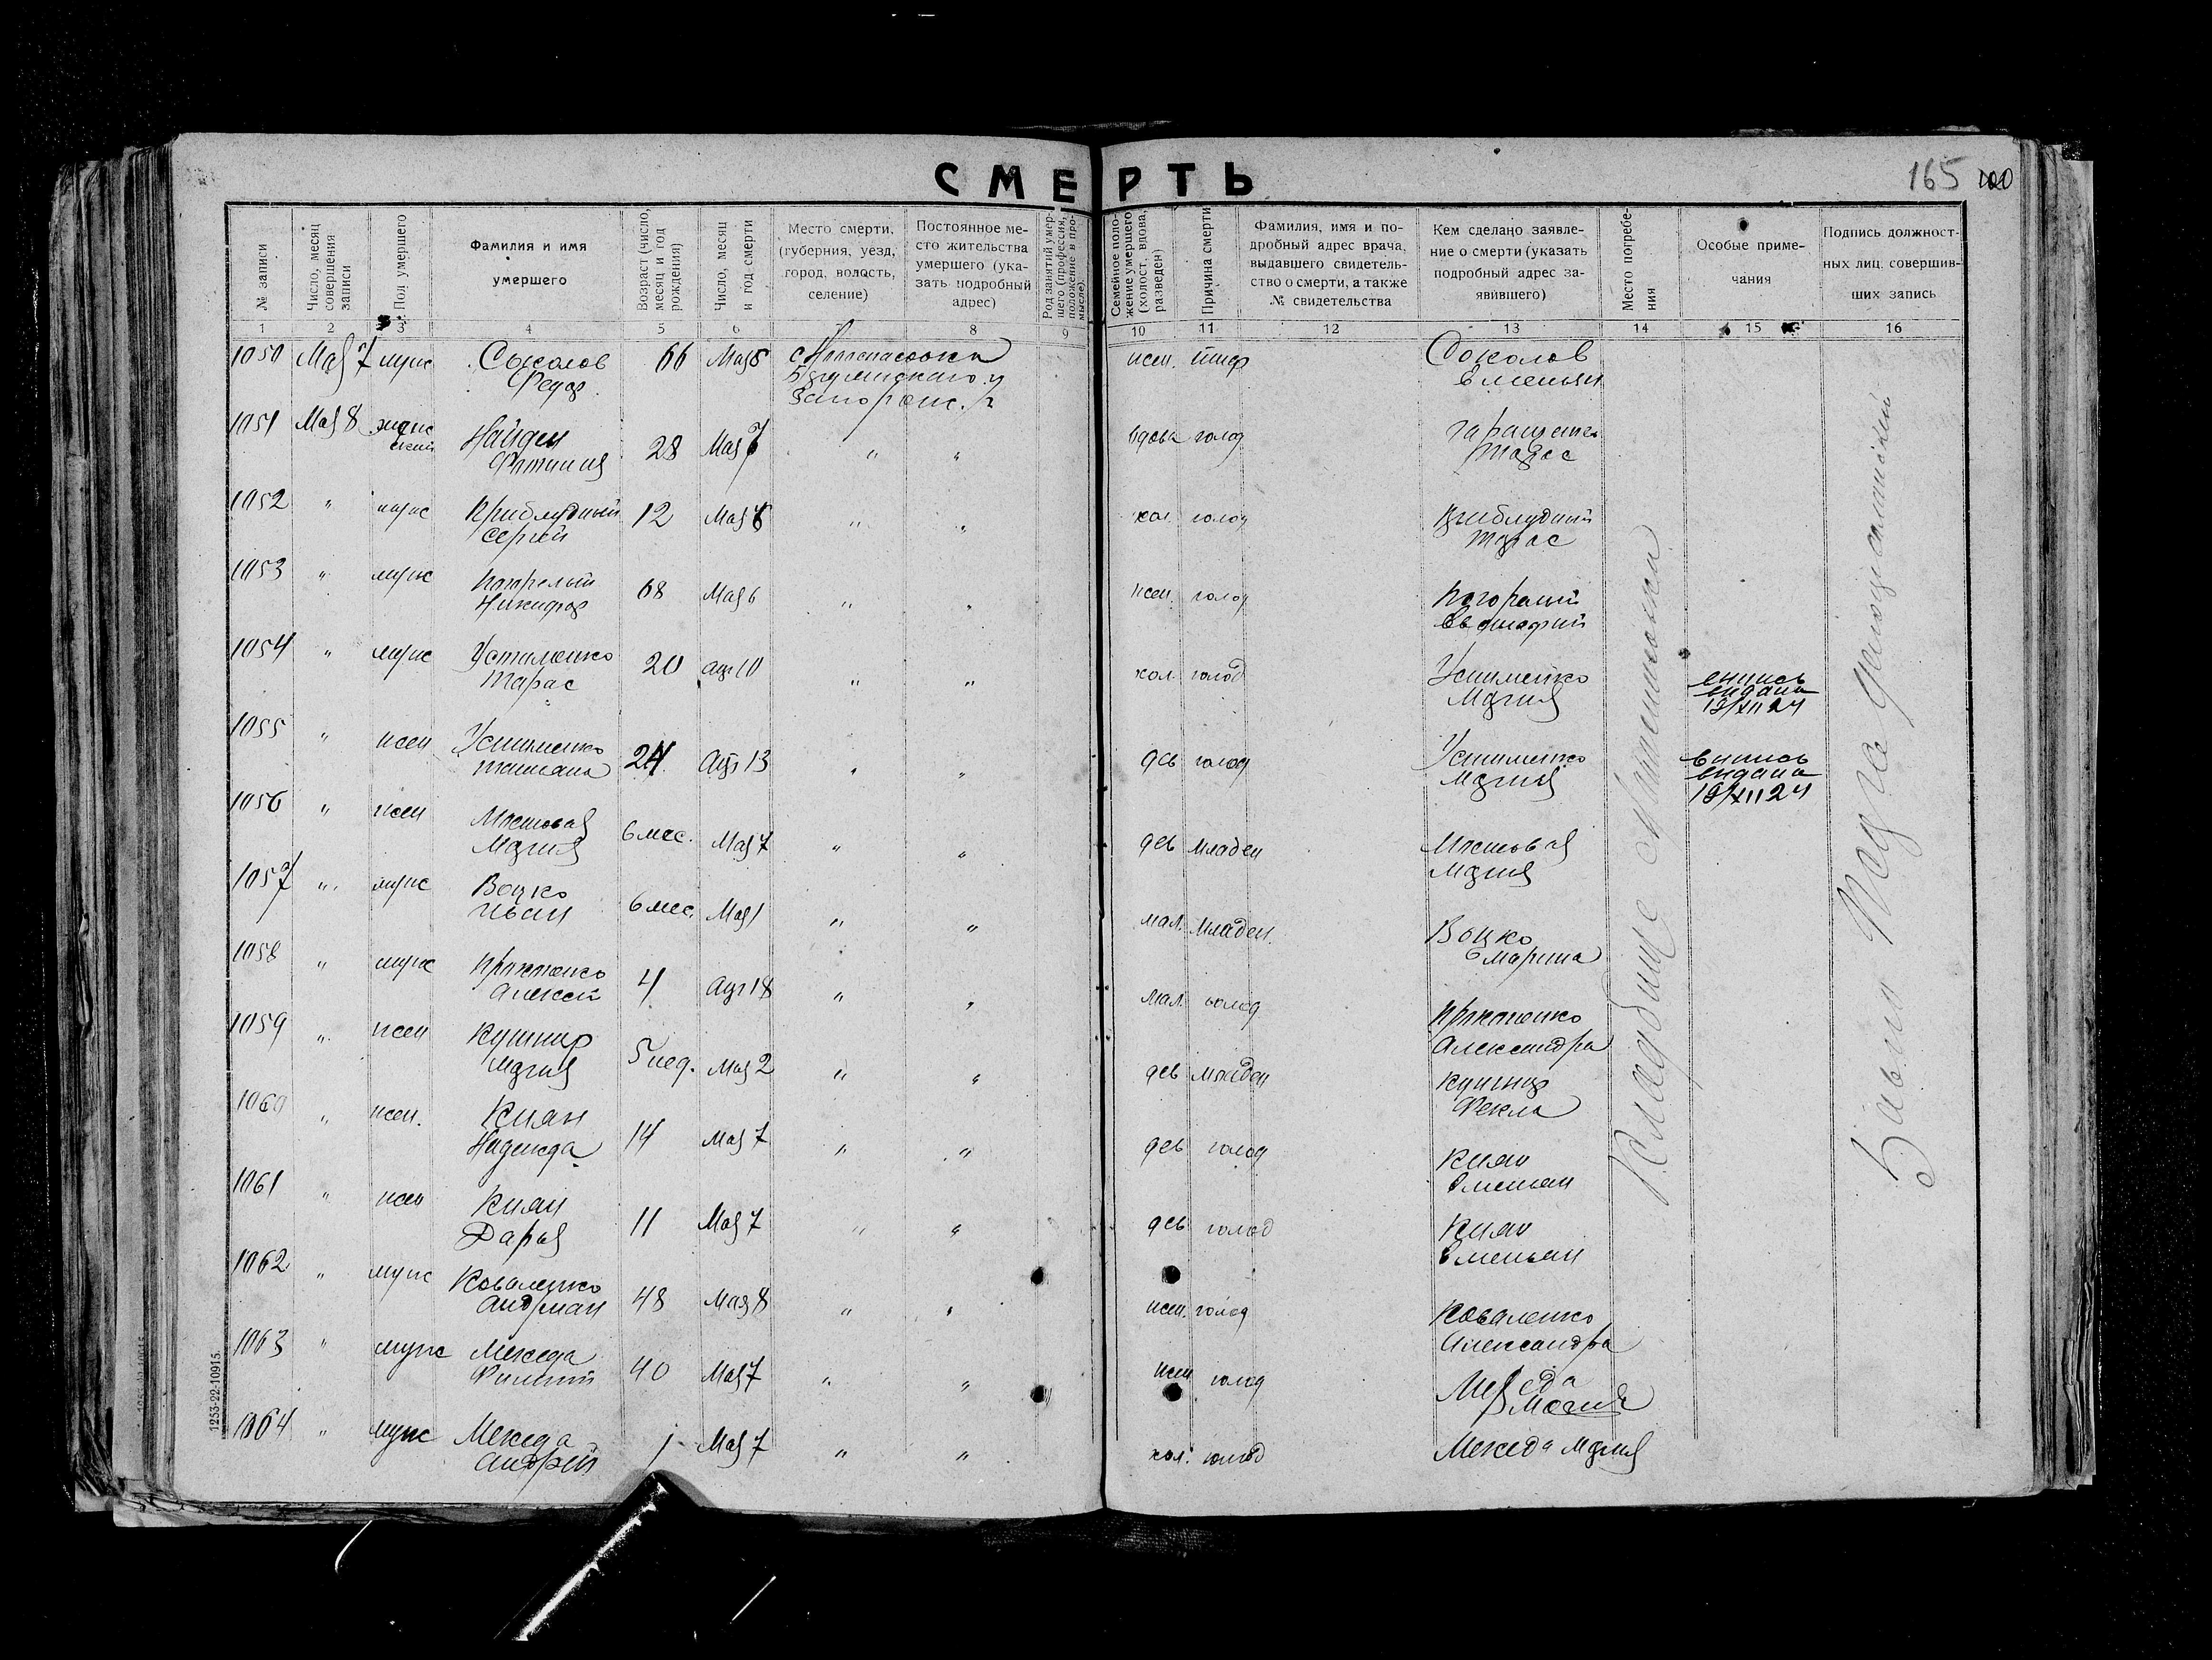 СМЕРТЬ
165 100
№ записи
Число, месяц совершения записи
Пол умершего
Фамилия и имя умершего
Возраст (число, месяц и год рождения)
Число, месяц и год смерти
Место смерти, (губерния, уезд, город, волость, селение)
Постоянное место жительства умершего (указать подробный адрес)
Род занятий умершего (профессия, положение в промысле).
Семейное положение умершего (холост, вдова, разведен)
Причина смерти
Фамилия, имя и подробный адрес врача, выдавшего свидетельство о смерти, а также № свидетельства
Кем сделано заявление о смерти (указать подробный адрес заявившего)
Место погребения
Особые примечания
Подпись должностных лиц, совершивших запись
1 2 3 4 5 6 7 8 9 10 11 12 13 14 15 16
1050 Мая 7 муж Соколов 66 Мая жен. тиф Соколов
Федор Емельян
Запорож. г
1051 Мая 8 женс Найден 28 Мая 7 " " вдова голод
ский Тарас
1052 " муж Приблудный 12 Мая " " хол. голод Приблудный
Сергий Тарас
1053 " муж 68 Мая 6 " " жен. голод
Никифор
1054 " муж Устименко 20 апр 10 " " хол голод Устименко
Тарас Мария
выпись
выдана
19/XII 24
1055 " жен Устименко 24 Апр 13 " " дев голод Устименко
Татиана Мария
выпись
выдана
19/XII 24
1056 " жен Мостовая 6 мес. Мая 7 " " дев младен Мостовая
Мария Мария
1057 " муж Воцко 6 мес. Мая 1 " " мал. младен. Воцко
Иван Марина
1058 " муж 4 Апр 18 " " мал. голод
Алексей Александра
1059 " жен Кушнир 5 нед. Мая 2 " " дев младен Кушнир
Мария Фекла
1060 " жен. Киян 14 Мая 7 " " дев голод Киян
Надежда Емельян
1061 " жен Киян 11 Мая 7 " " дев голод Киян
Дарья Емельян
1062 " муж Коваленко 48 Мая 8 " " жен. голод Коваленко
Андриан Александра
1063 " муж Межеда 40 Мая 7 " " жен голод
Филипп Мария
1064 " муж Межеда 1 Мая 7 " " хол. голод Межеда Мария
Андрей
Кладбище с
1253-22-10915.